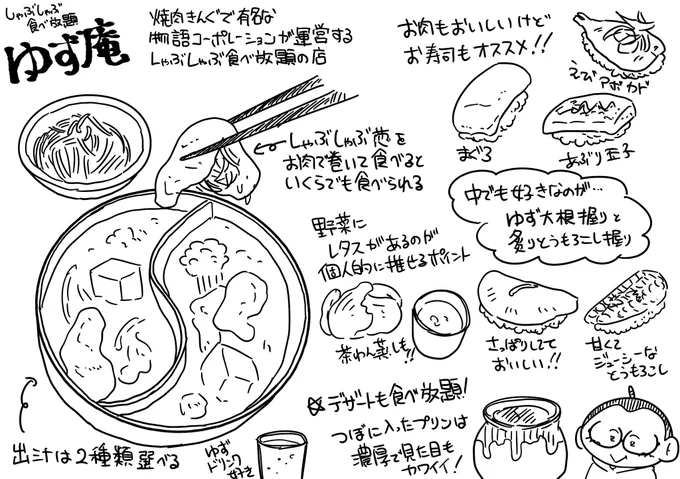 しゃぶしゃぶ
食べ放題
ゆず庵
焼肉きんぐで有名な
物語コーポレーションが運営する
しゃぶしゃぶ食べ放題の店
お肉もおいしいけど
お寿司もオススメ!!
えびアボカド
まぐろ
あぶり玉子
しゃぶしゃぶ葱を
お肉で巻いて食べると
いくらでも食べられる
中でも好きなのが…
ゆず大根握りと
炙りとうもろこし握り
野菜に
レタスがあるのが
個人的に推せるポイント
茶わん蒸しも!!
さっぱりしてて
おいしい!!
甘くて
ジューシーな
とうもろこし
デザートも食べ放題!
つぼに入ったプリンは
濃厚で見た目も
カワイイ!
出汁は2種類選べる
ゆず
ドリンク
好き